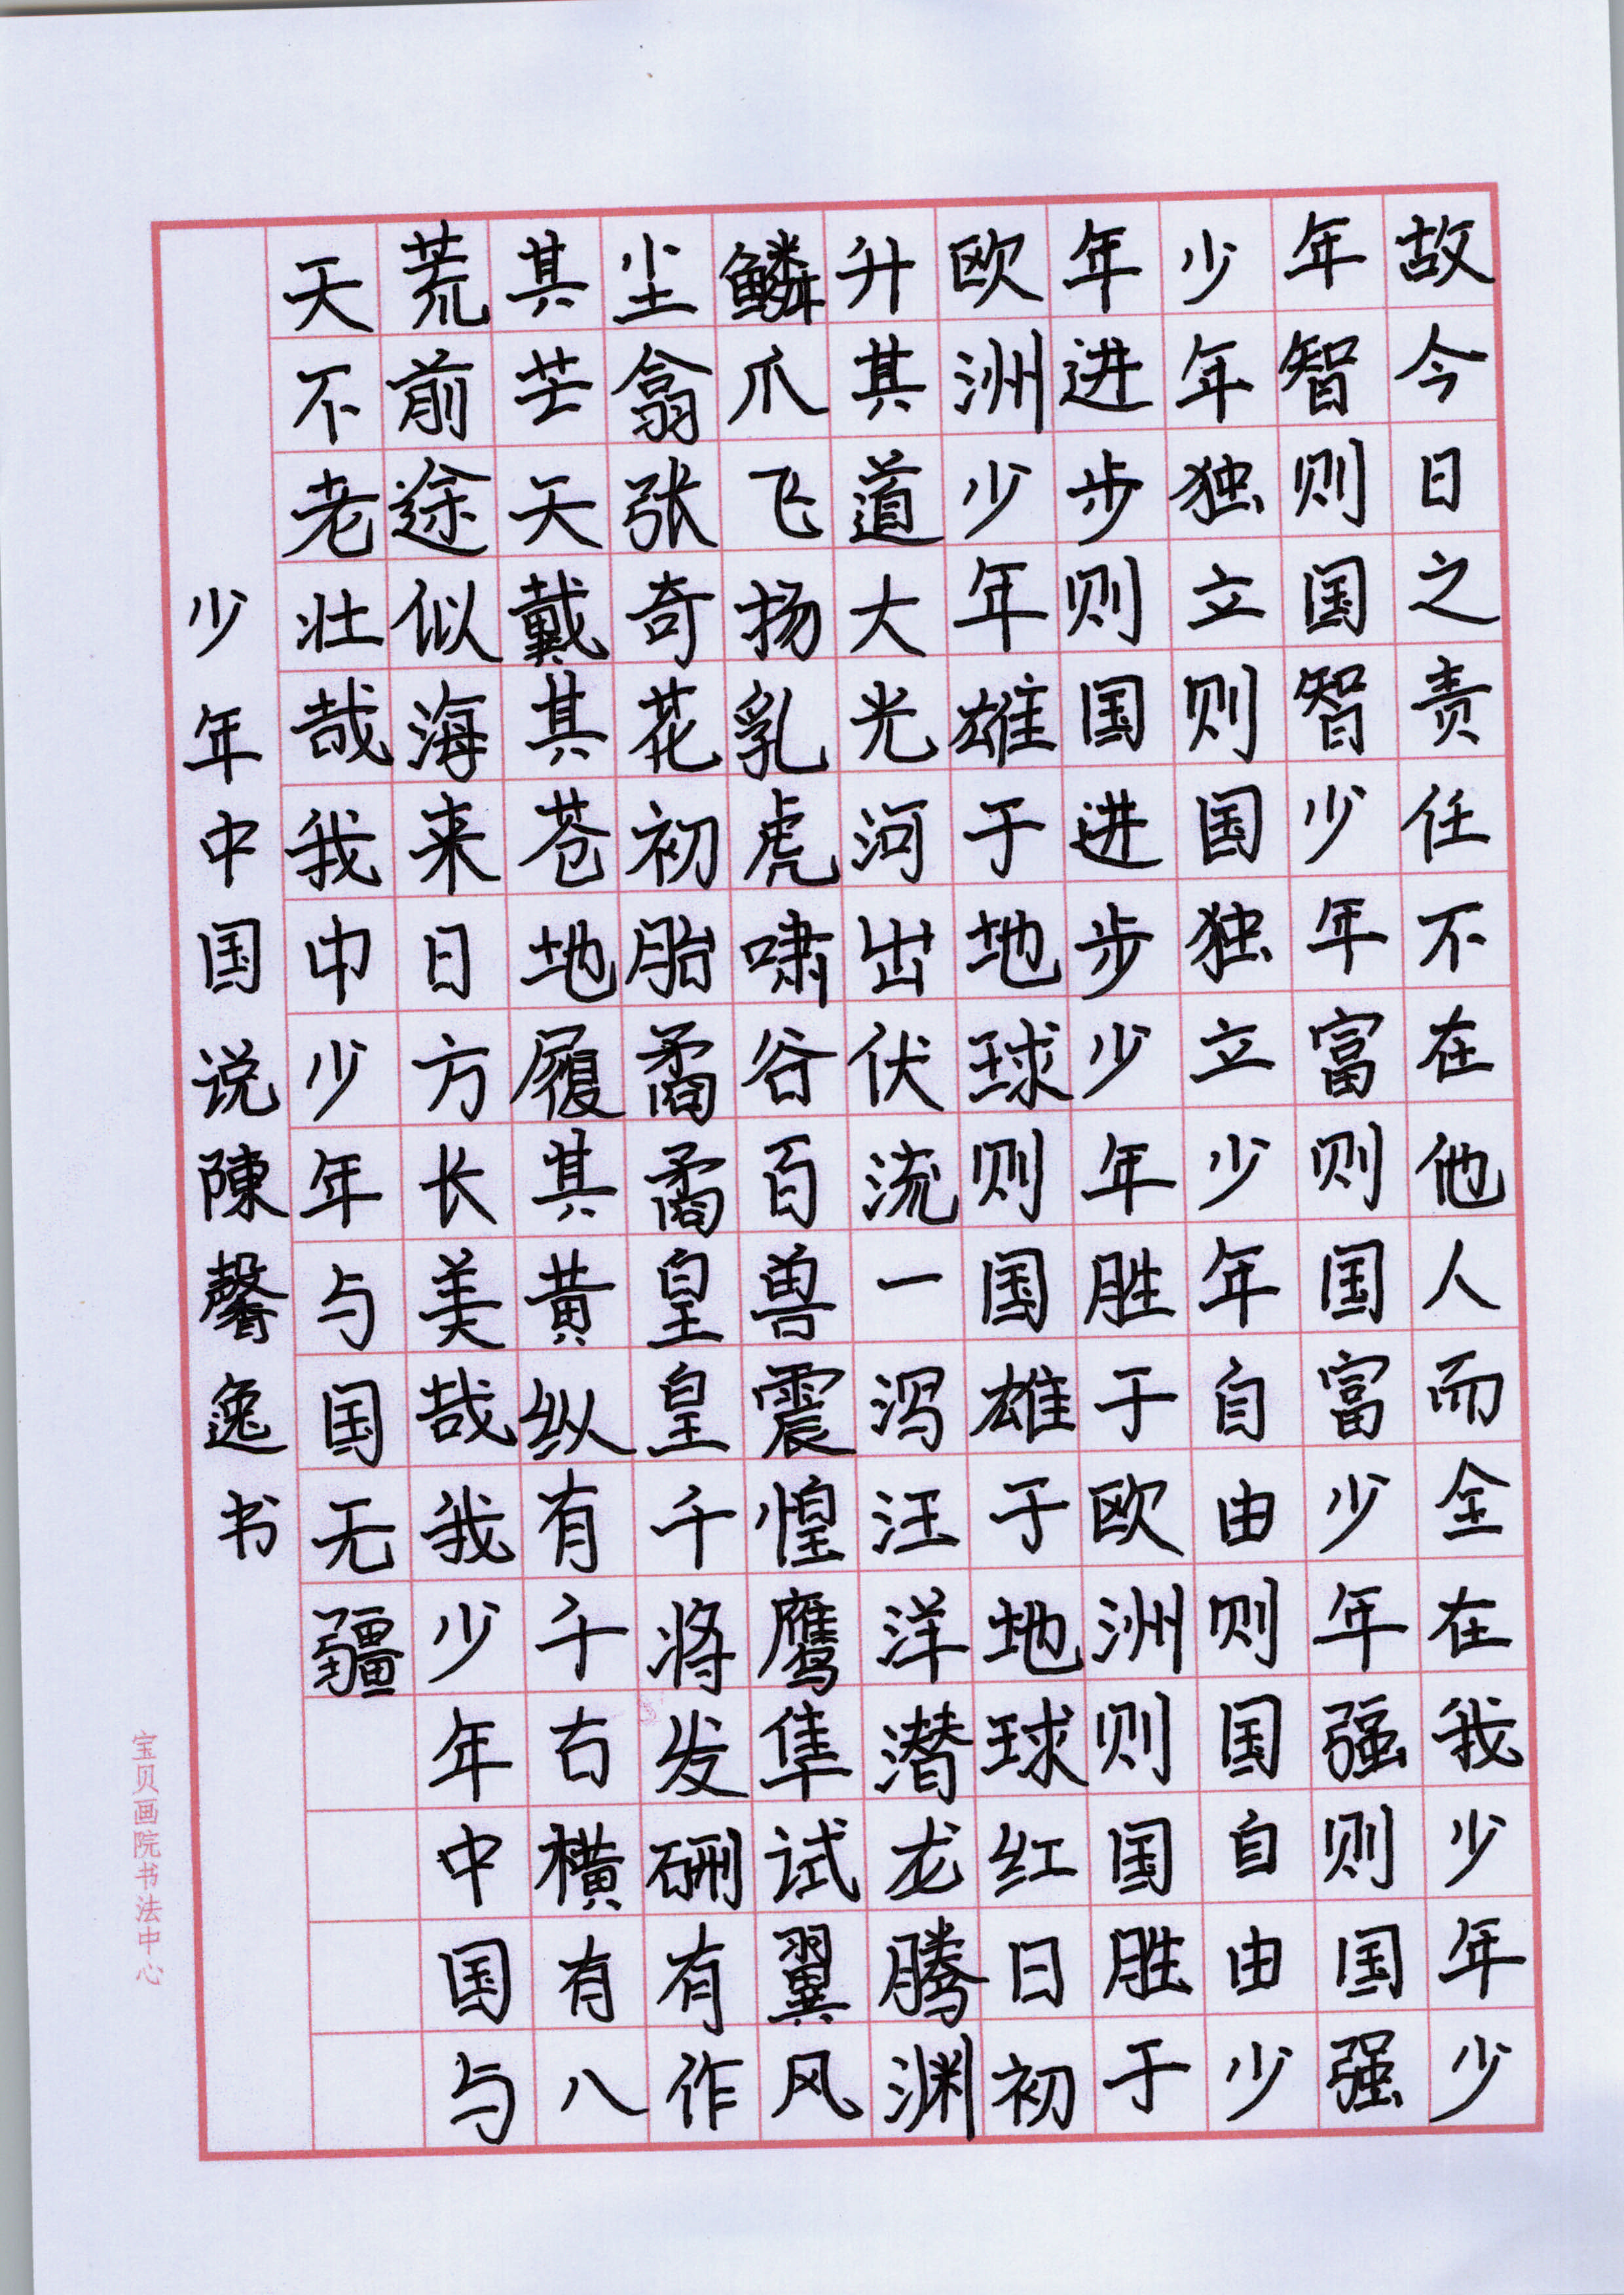 故今日之责任不在他人而全在我少年少
年智则国智少年富则国富少年强则国强
少年独立则国独立少年自由则国自由少
年进步则国进步少年胜于欧洲则国胜于
欧洲少年雄于地球则国雄于地球红日初
升其道大光河出伏流一泻汪洋潜龙腾渊
鳞爪飞扬乳虎啸谷百兽震惶鹰隼试翼风
尘翕张奇花初胎矞矞皇皇千将发硎有作
其芒天戴其苍地履其黄纵有千古横有八
荒前途似海来日方长美哉我少年中国与
天不老壮哉我中少年与国无疆
少年中国说陳馨逸书
宝贝画院书法中心